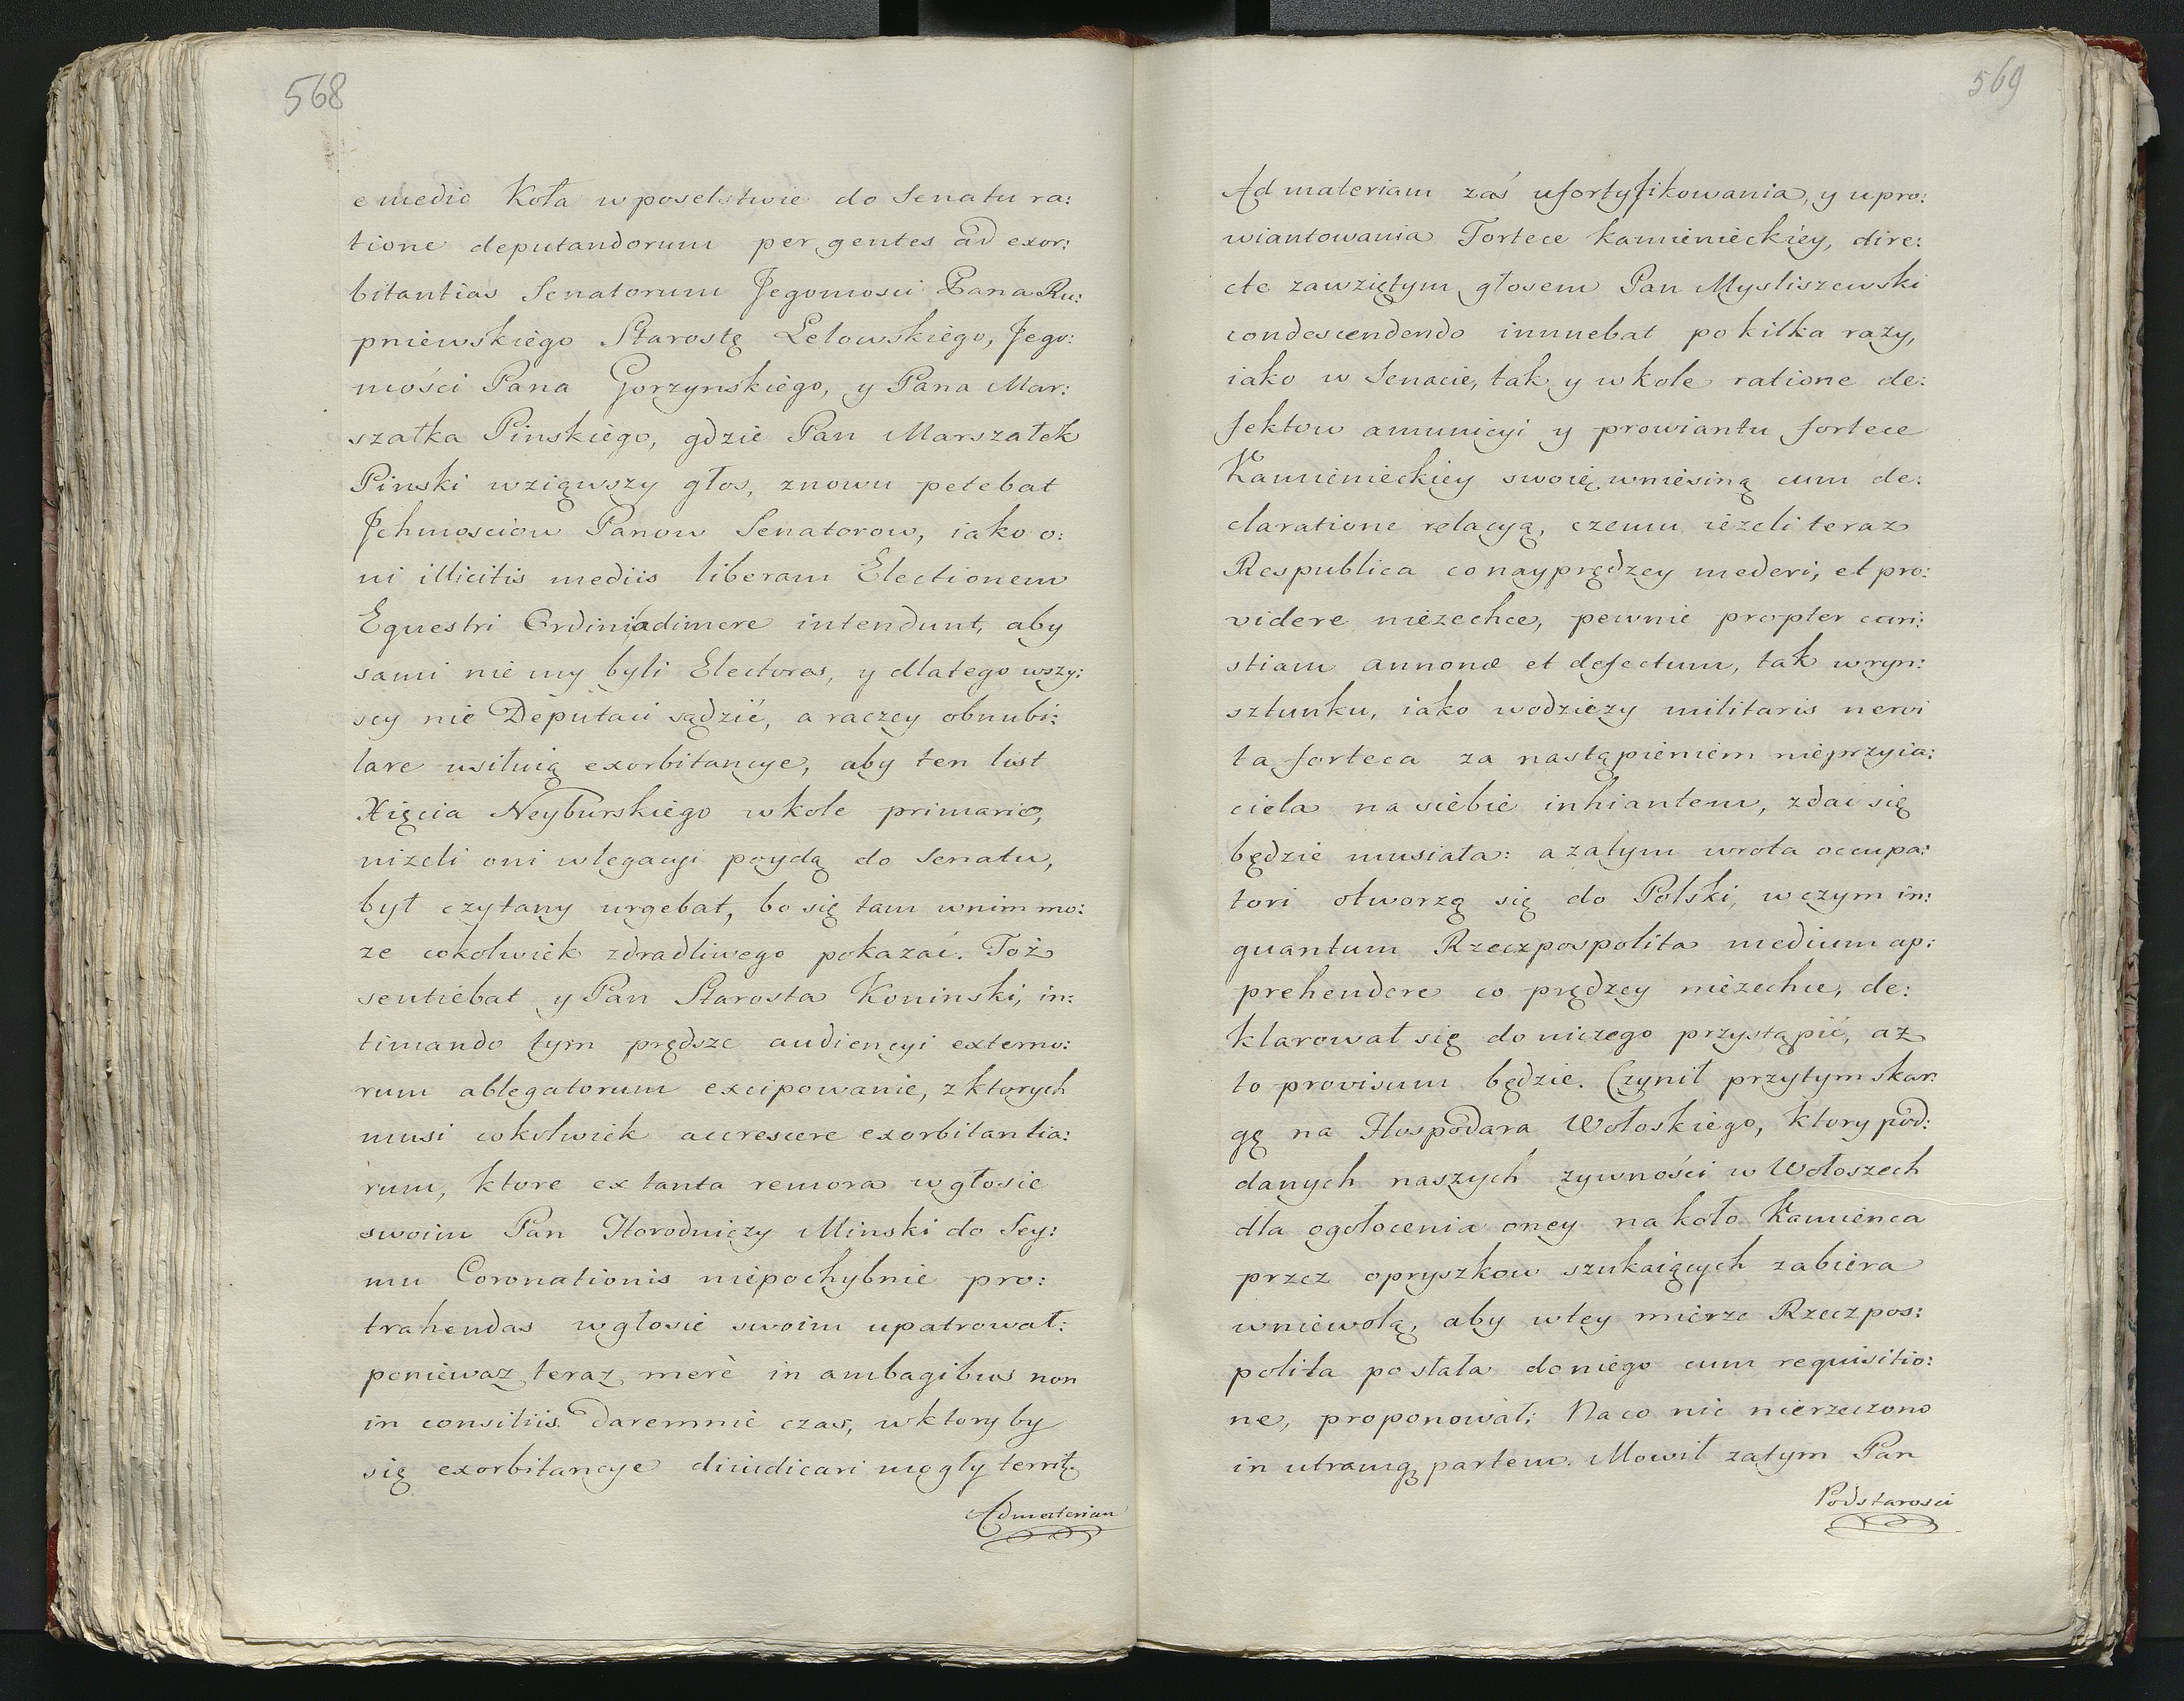 568
e medio Koła w poselstwie do Senatu ra:
tione deputandorum per gentes ad exor:
bitantias Senatorum Jegomosci Pana Ru:
pniewskiego Starostę Lelowskiego, Jego:
mości Pana Gorzynskiego, y Pana Mar:
szałka Pinskiego, gdzie Pan Marszałek
Pinski wziąwszy głos, znowu petebat
Jchmosciow Panow Senatorow, iako o:
ni illicitis mediis liberam Electionem
Equestri Ordini adimere intendunt, aby
sami nie my byli Electores, y dlatego wszy:
scy nie Deputaci sądzić, a raczey obnubi:
lare usiłuią exorbitancye, aby ten list
Xięcia Neyburskiego w kole primario,
niżeli oni w legacyi poydą do Senatu,
był czytany urgebat, bo się tam w nim mo:
ze cokolwiek zdradliwego pokazać. Toż
sentiebat y Pan Starosta Koninski, in:
timando tym prędsze audiencyi externo:
rum ablegatorum excipowanie, z ktorych
musi cokolwiek accrescere exorbitantia:
rum, ktore ex tanta remora w głosie
swoim Pan Horodniczy Minski do Sey:
mu Coronationis niepochybnie pro:
trahendas w głosie swoim upatrował:
poniewaz teraz merè in ambagibus non
in consiliis daremnie czas, w ktory by
się exorbitancye diiudicari mogły territ.
Ad materiam
569
Ad materiam zaś ufortyfikowania, y upro:
wiantowania Fortece Kamienieckiey, dire:
cte zawziętym głosem Pan Mysliszewski
condescendendo innuebat po kilka razy,
iako w Senacie, tak y w kole ratione de:
fektow amunicyi y prowiantu fortece
Kamienieckiey swoię wniesiną cum de:
claratione relacyą, czemu ieżeli teraz
Respublica co nayprędzey mederi, et pro:
videre niezechce, pewnie propter cari:
stiam annonæ et defectum, tak w ryn:
sztunku, iako w odzieży militaris nervi
ta forteca za nastąpieniem nieprzyia:
ciela na siebie inhiantem, zdać się
będzie musiała: a zatym wrota occupa:
tori otworzą się do Polski, w czym in:
quantum Rzeczpospolita medium ap:
prehendere co prędzey niezechce, de:
klarował się do niczego przystąpić, aż
to provisum będzie. Czynił przytym skar:
gę na Hospodara Wołoskiego, ktory pod:
danych naszych zywności w Wołoszech
dla ogołocenia oney na koło Kamienca
przez opryszkow szukaiących zabiera
w niewolą, aby w tey mierze Rzeczpos:
polita posłała do niego cum requisitio:
ne, proponował; Na co nic nierzeczono
in utramq partem. Mowił zatym Pan
Podstarosci